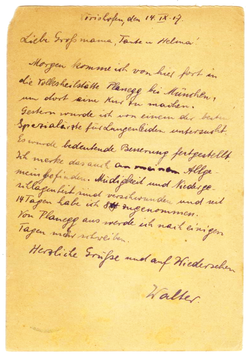 den 14. IX. 17
Liebe Großmama, Tante u Helma!
Morgen komme ich von hier fort in
die Volksheilstätte Planegg bei München,
um dort eine Kur zu machen.
Gestern wurde ich von einem der besten
Spezialärzte für Lungenleiden untersucht.
Es wurde bedeutende Besserung festgestellt
Ich merke das auch an meinem Allge
meinbefinden. Müdigkeit und Niederge-
schlagenheit sind verschwunden und seit
14 Tagen habe ich zugenommen.
Von Planegg aus werde ich nach einigen
Tagen mehr schreiben.
Herzliche Grüße und auf Wiedersehen
Walter.